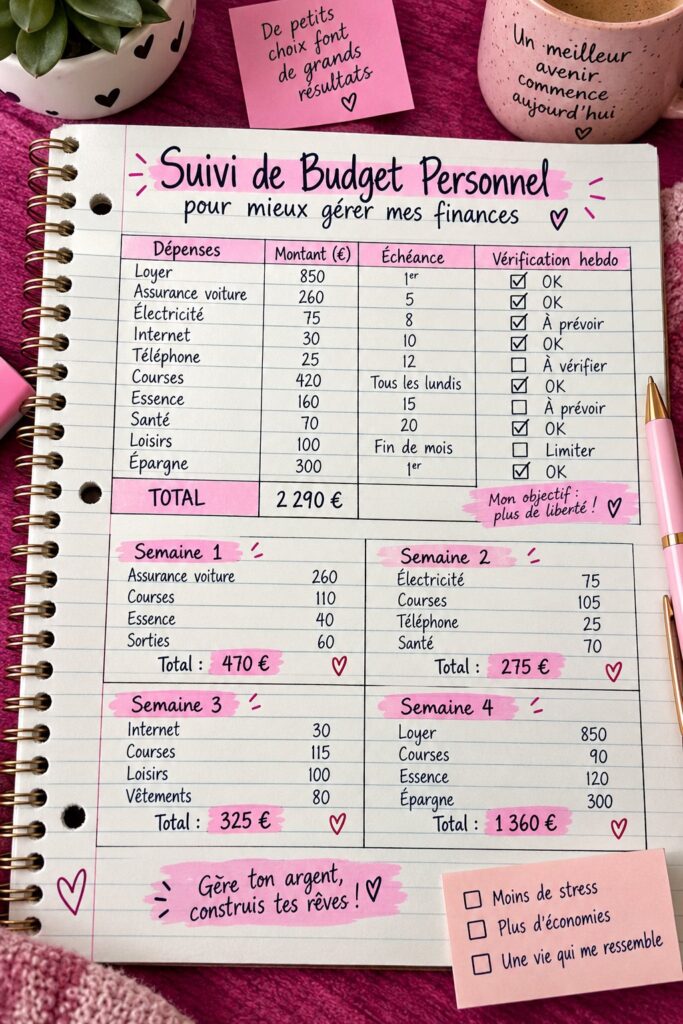 De petits
choix font
de grands
résultats
Un meilleur
avenir
commence
aujourd'hui
Suivi de Budget Personnel
pour mieux gérer mes finances
Dépenses Montant (€) Échéance Vérification hebdo
Loyer 850 1er ☑ OK
Assurance voiture 260 5 ☑ OK
Électricité 75 8 ☑ À prévoir
Internet 30 10 ☑ OK
Téléphone 25 12 ☐ À vérifier
Courses 420 Tous les lundis ☑ OK
Essence 160 15 ☐ À prévoir
Santé 70 20 ☑ OK
Loisirs 100 Fin de mois ☐ Limiter
Épargne 300 1er ☑ OK
TOTAL 2 290 €
Mon objectif :
plus de liberté !
Semaine 1
Assurance voiture 260
Courses 110
Essence 40
Sorties 60
Total : 470 €
Semaine 2
Électricité 75
Courses 105
Téléphone 25
Santé 70
Total : 275 €
Semaine 3
Internet 30
Courses 115
Loisirs 100
Vêtements 80
Total : 325 €
Semaine 4
Loyer 850
Courses 90
Essence 120
Épargne 300
Total : 1 360 €
Gère ton argent,
construis tes rêves !
☐ Moins de stress
☐ Plus d'économies
☐ Une vie qui me ressemble